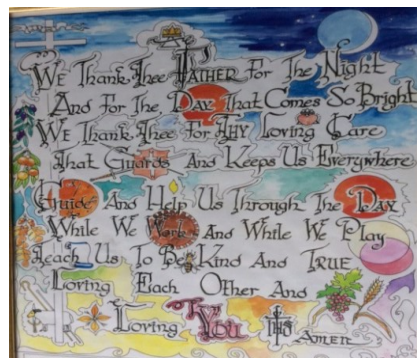 We Thank Thee Father For The Night
And For The Day That Comes So Bright
We Thank Thee For Thy Loving Care
That Guards And Keeps Us Everywhere
Guide And Help Us Through The Day
While We Work And While We Play
Teach Us To Be Kind And True
Loving Each Other And
Loving You
IHS
Amen